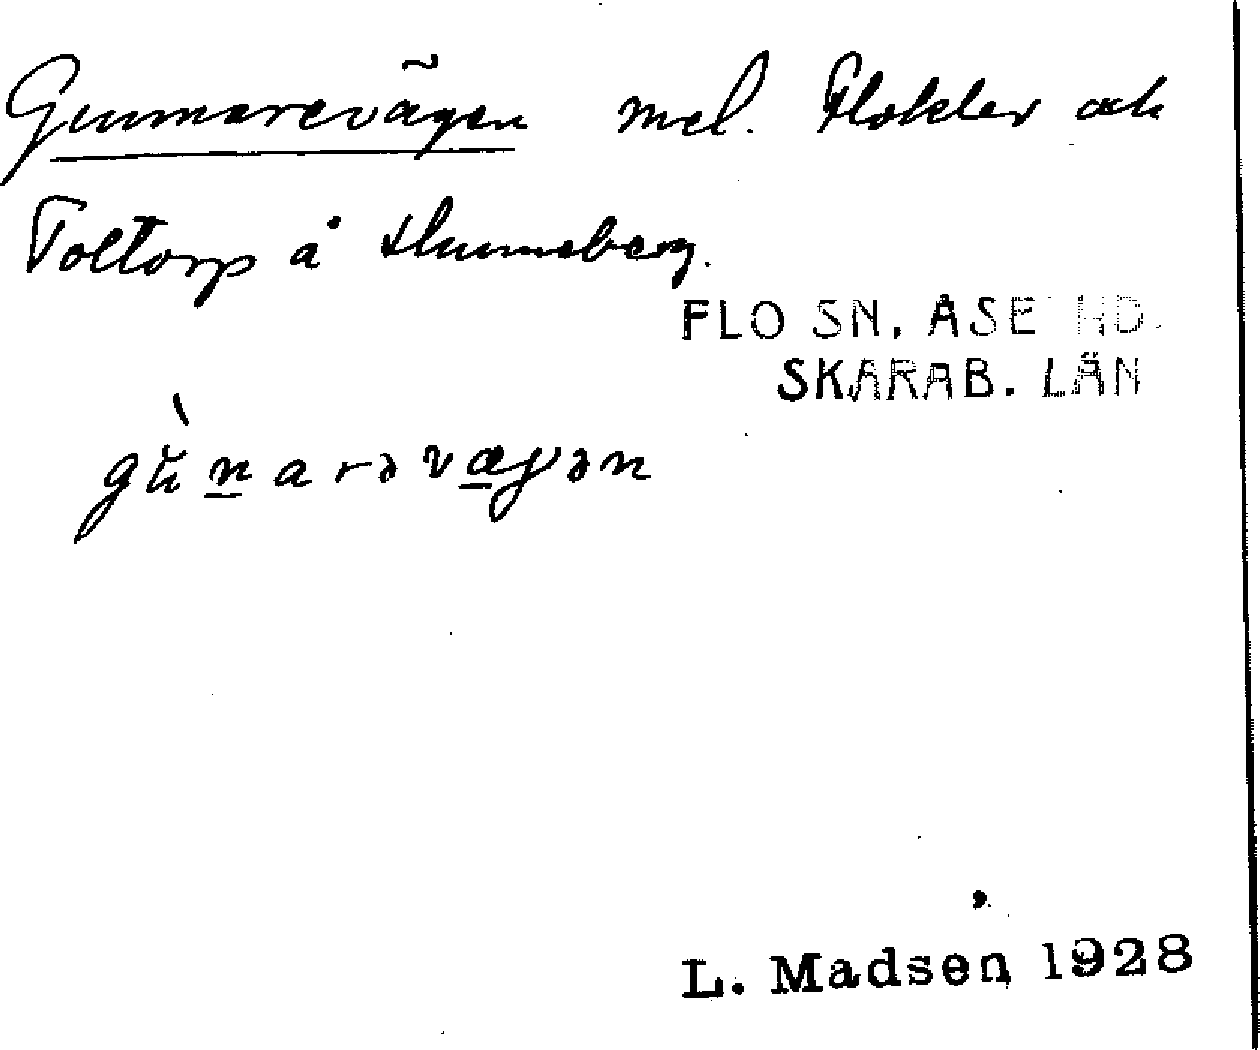 Gunnarevägen mel. Flokler och
Toltorp å Hunneberg.
FLO SN. ÅSE HD.
SKARAB. LÄN
gùnarəvægən
L. Madsen 1928